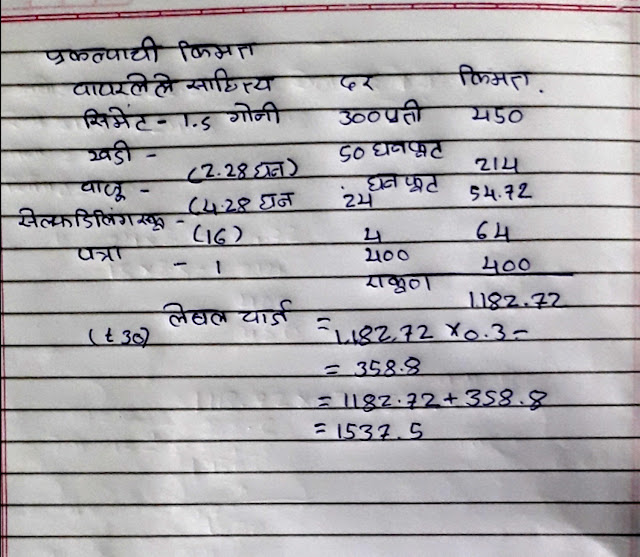 प्रकल्पाची किंमत
वापरलेले साहित्य दर किंमत.
सिमेंट - 1.5 गोनी 300प्रती 450
खडी - (2.28घन) 50 घनफूट 214
वाळू - (4.28 घन 24 घनफूट 54.72
सेल्फड्रिलिंगस्क्रू - (16) 4 64
पत्रा - 1 400 400
एकुण 1182.72
(t 30) लेबल चार्ज = 1182.72 × 0.3 -
= 358.8
= 1182.72 + 358.8
= 1537.5